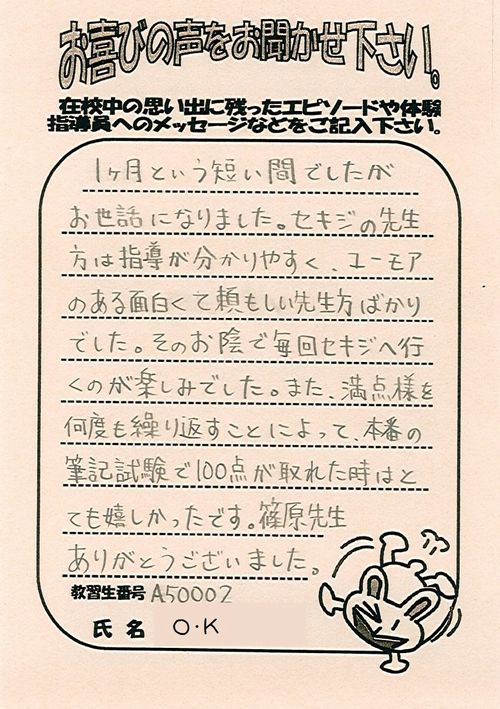 お喜びの声をお聞かせ下さい。
在校中の思い出に残ったエピソードや体験
指導員へのメッセージなどをご記入下さい。
1ヶ月という短い間でしたが
お世話になりました。セキジの先生
方は指導が分かりやすく、ユーモア
のある面白くて頼もしい先生方ばかり
でした。そのお陰で毎回セキジへ行
くのが楽しみでした。また、満点様を
何度も繰り返すことによって、本番の
筆記試験で100点が取れた時はと
ても嬉しかったです。篠原先生
ありがとうございました。
教習生番号 A50002
氏名 O・K